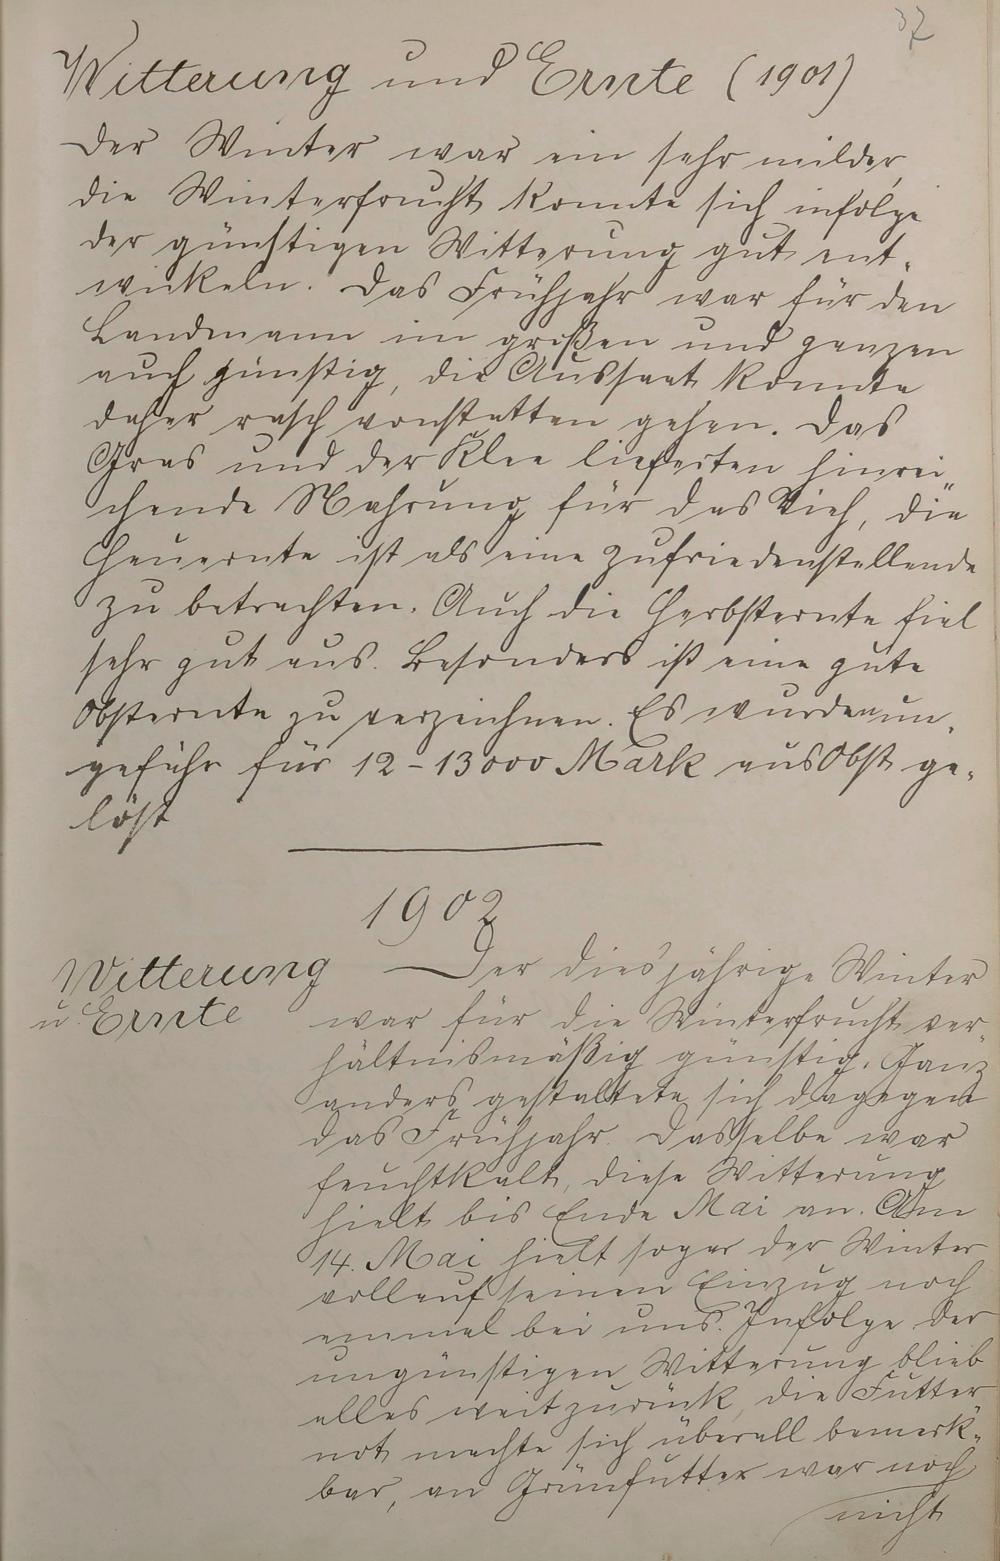 37
Witterung und Ernte (1901)
Der Winter war ein sehr milder,
die Winterfrucht konnte sich infolge
der günstigen Witterung gut ent-
wickeln. Das Frühjahr war für den
Landmann im großen und ganzen
auch günstig, die Aussaat konnte
daher rasch vonstatten gehen. Das
Gras und der Klee lieferten hinrei-
chende Nahrung für das Vieh, die
Heuernte ist als eine zufriedenstellende
zu betrachten. Auch die Herbsternte fiel
sehr gut aus. Besonders ist eine gute
Obsternte zu verzeichnen. Es wurden un-
gefähr für 12-13000 Mark aus Obst ge-
löst
1902
Witterung
u. Ernte
Der diesjährige Winter
war für die Winterfrucht ver-
hältnismäßig günstig. Ganz
anders gestaltete sich dagegen
das Frühjahr. Dasselbe war
feuchtkalt, diese Witterung
hielt bis Ende Mai an. Am
14. Mai hielt sogar der Winter
vollauf seinen Einzug noch
einmal bei uns. Infolge der
ungünstigen Witterung blieb
alles weit zurück, die Futter
not machte sich überall bemerk-
bar, an Grünfutter war noch
nicht